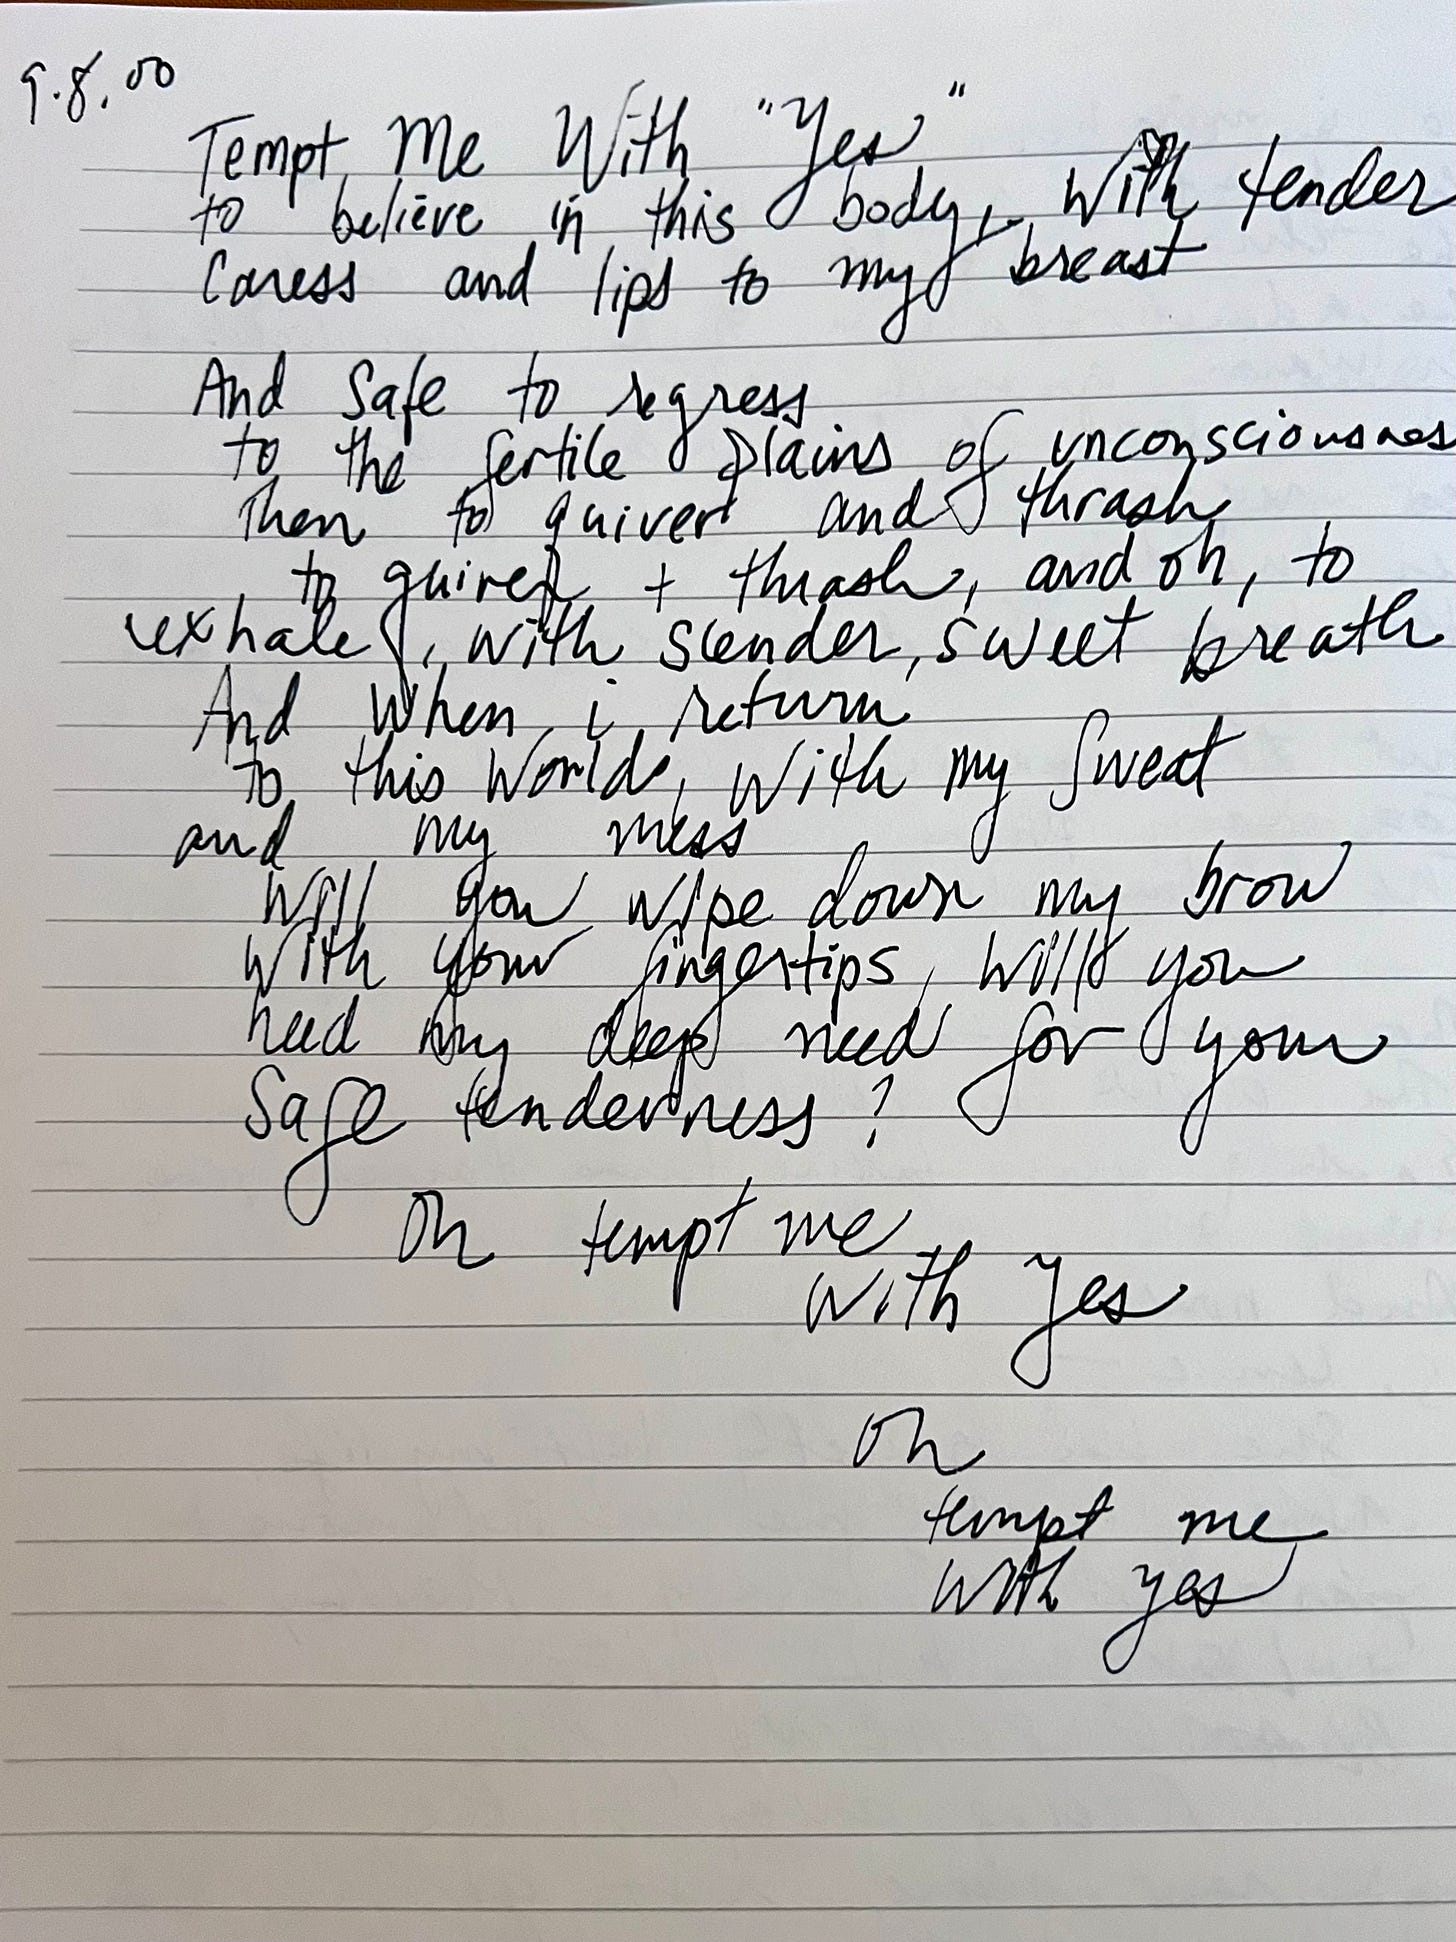 9.8.00
Tempt Me With "Yes"
to believe in this body, with tender
Caress and lips to my breast
And Safe to regress
to the fertile plains of unconsciousness
Then to quiver and thrash
to quiver + thrash, and oh, to
exhale, with slender, sweet breath
And When i return
to this World, With my Sweat
and my mess
Will you wipe down my brow
With your fingertips, Will you
heed my deep need for your
Safe tenderness?
Oh tempt me
With Yes
Oh
tempt me
With yes